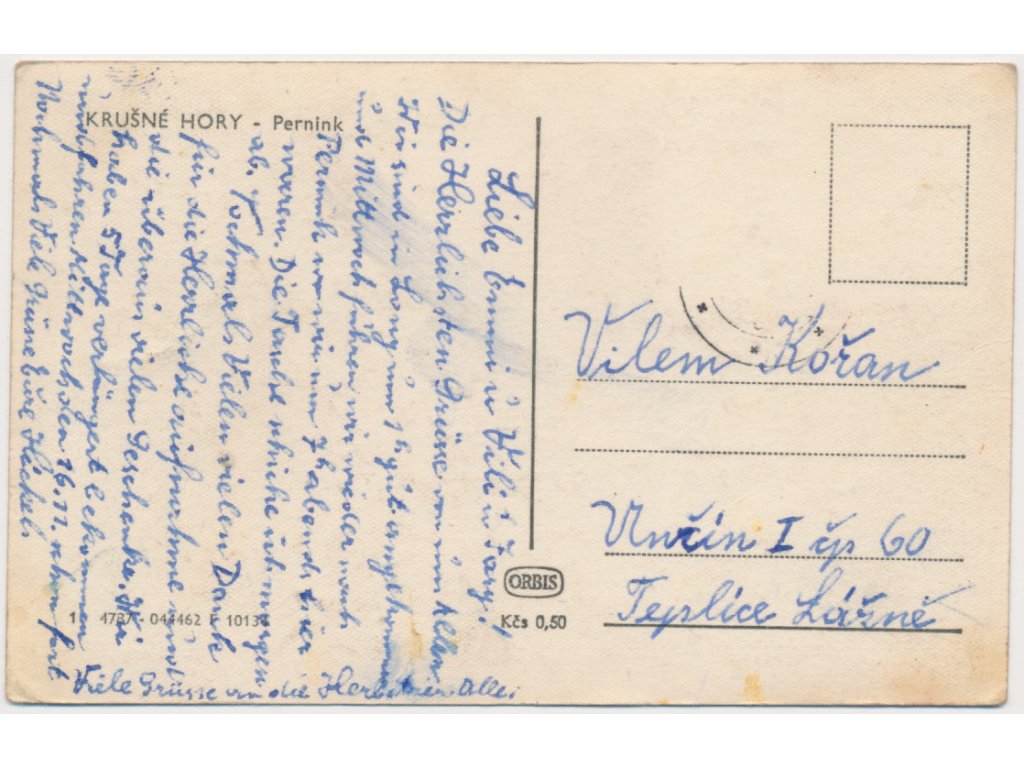 KRUŠNÉ HORY - Pernink
Liebe Emmi u Vili u Jarz!
Die Herzlichsten Grüsse von uns Allen
Wir sind in Lany um 1h gut angekommen
und Mittwoch fuhren wir wieder nach
Pernink wo wir um 7h abends hier
waren. Die Tasche schicke ich morgen
ab. Nochmals Vielen vielen Dank
für die Herzliche aufnahme und
die überaus vielen Geschenke. Wir
haben 5 Tage verlängert bekommen
und fahren Mittwoch den 16.11. schon fort
Nochmals Viele Grüsse Eure Häckels
Viele Grüsse an die Alle
ORBIS
Kčs 0,50
1 4787 - 044462 F 10134
Vilem Kořan
Unčín I čp 60
Teplice Lázně